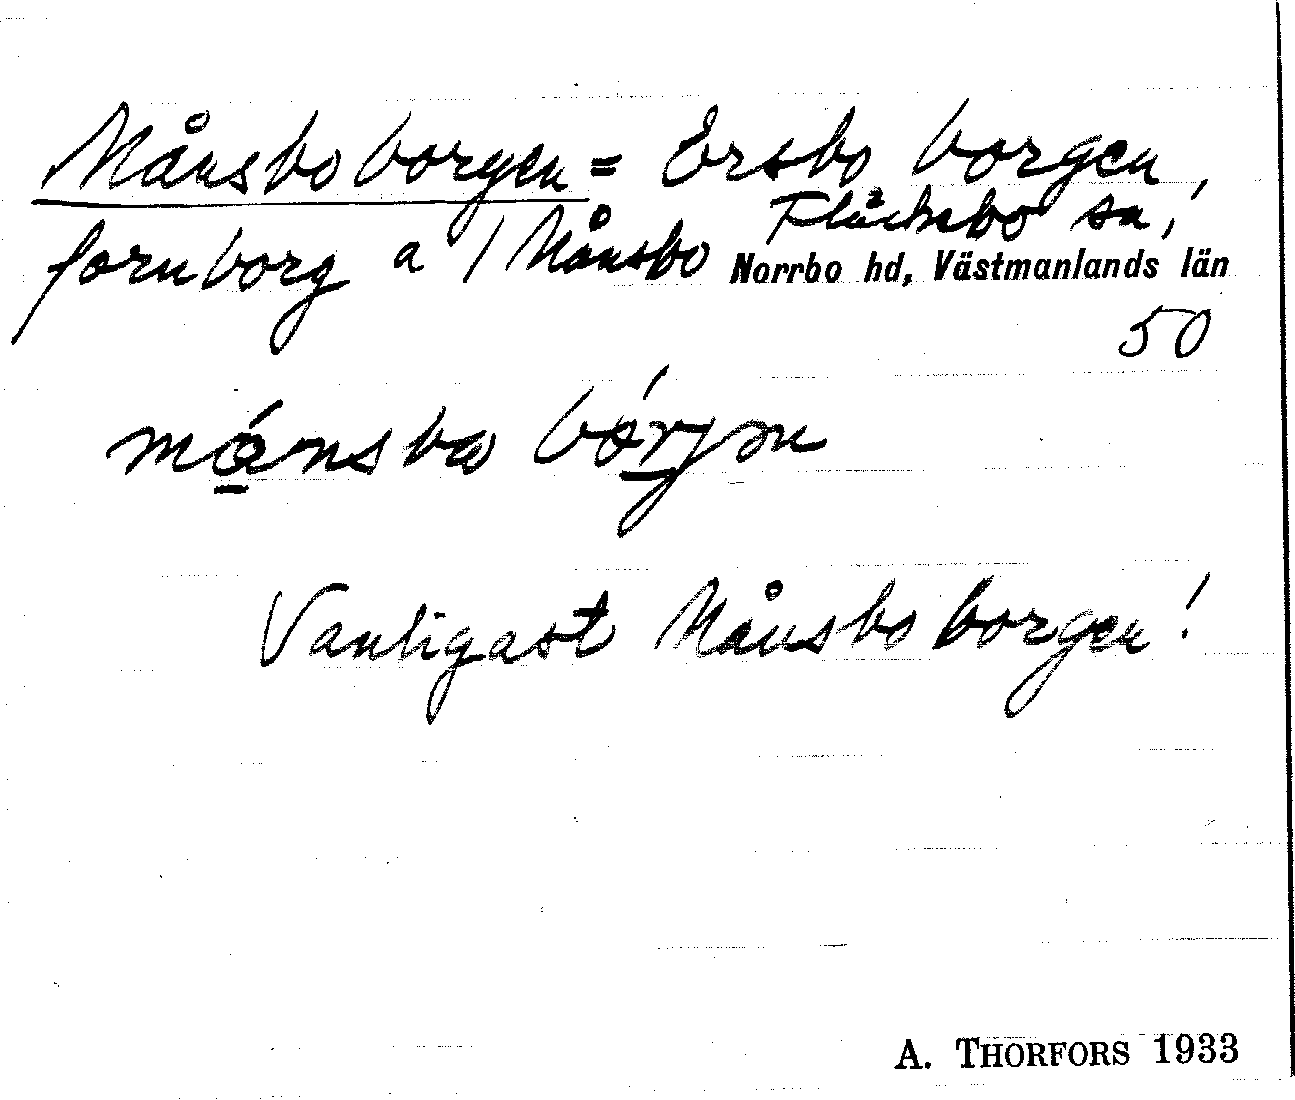 Månsboborgen = Ersbo borgen,
Fläckebo sn,
fornborg a / Månsbo Norrbo hd, Västmanlands län
50
Vanligast Månsboborgen!
A. THORFORS 1933